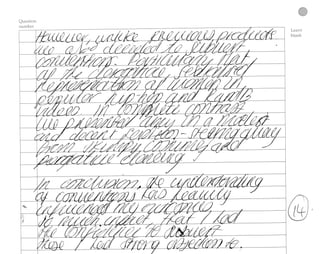 Question
number
Leave
blank
However, unlike previous products
we also decided to subvert
conventions. Particularly that
of the derogative, sexualised
representation of women in
popular hip hop and RandB
videos. In complete contrast
we presented them in a modest
and decent fashion - steering away
from skimpy costumes and
provocative dancing.
In conclusion, the understanding
of conventions has heavily
influenced my outcomes,
so much in fact, that I had
the confidence to subvert
those I had strong objection to.
14